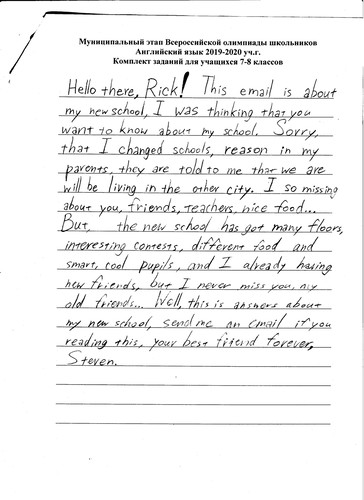 Муниципальный этап Всероссийской олимпиады школьников
Английский язык 2019-2020 уч.г.
Комплект заданий для учащихся 7-8 классов
Hello there, Rick! This email is about
my new school, I was thinking that you
want to know about my school. Sorry,
that I changed schools, reason in my
parents, they are told to me that we are
will be living in the other city. I so missing
about you, friends, teachers, nice food...
But, the new school has got many floors,
interesting contests, different food and
smart, cool pupils, and I already having
new friends, but I never miss you, my
old friends... Well, this is answers about
my new school, send me an email if you
reading this, your best friend forever,
Steven.